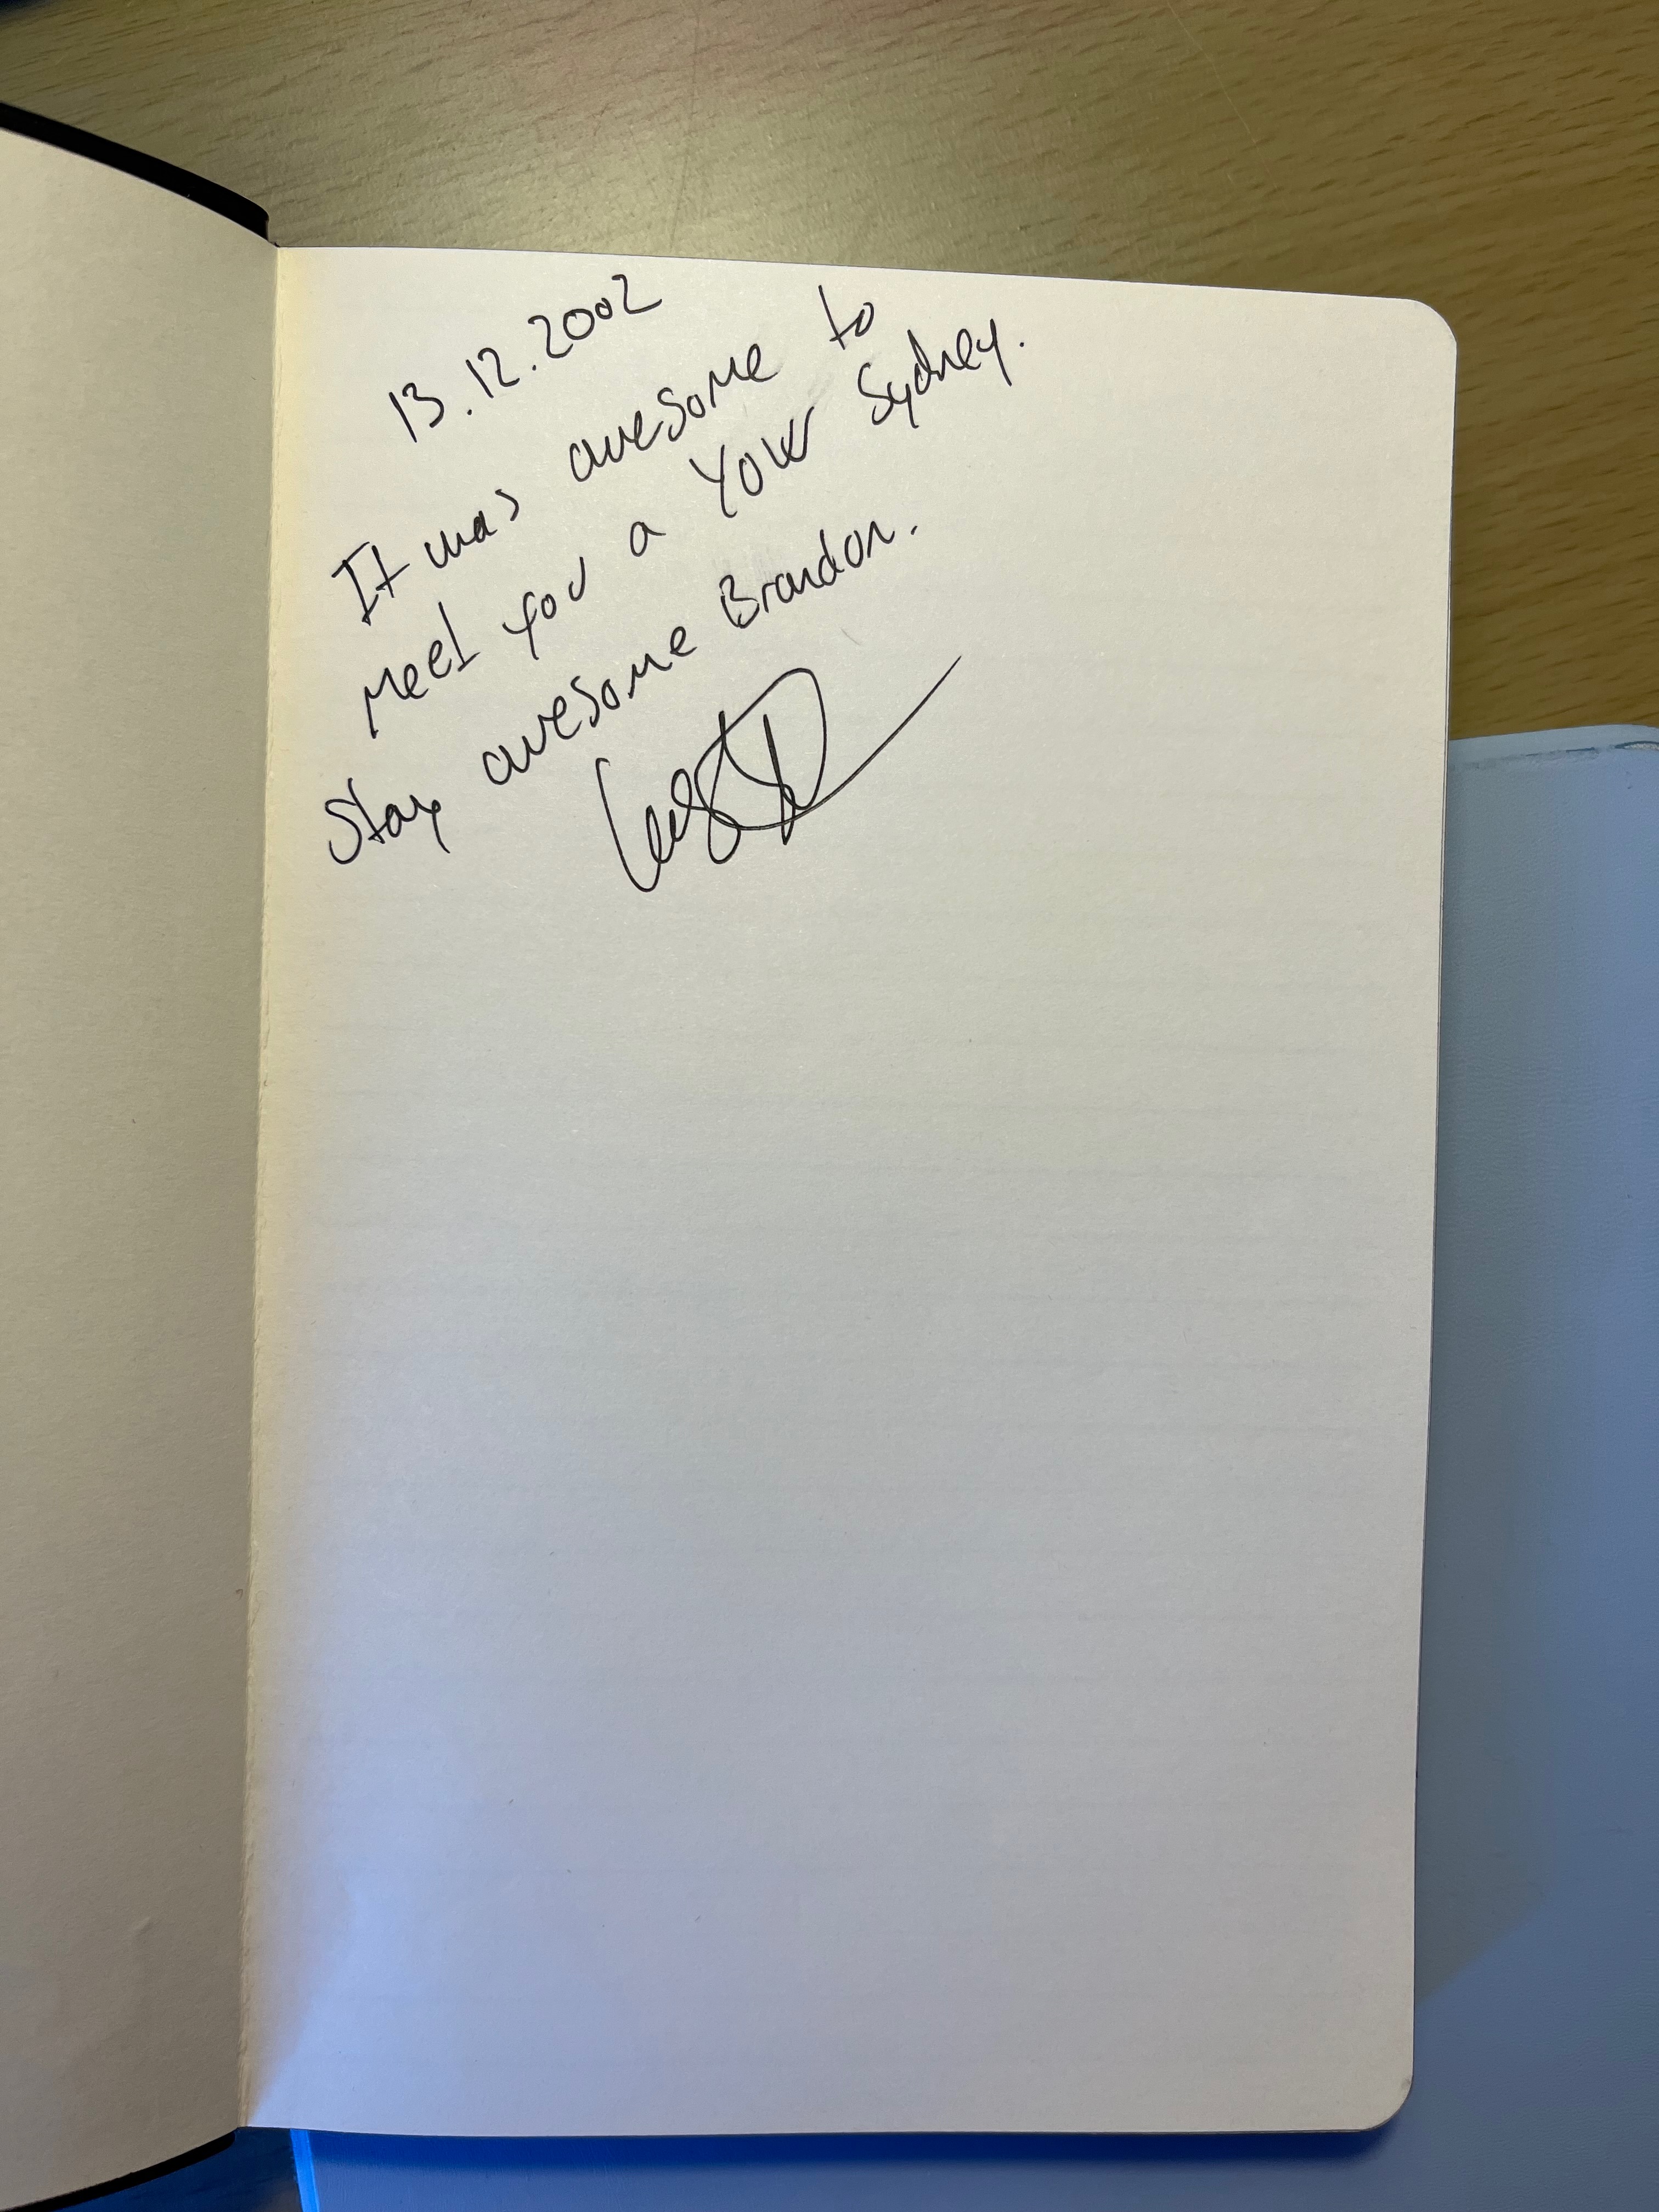 13.12.2002
It was awesome to
meet you a YOW Sydney.
Stay awesome Brandon.